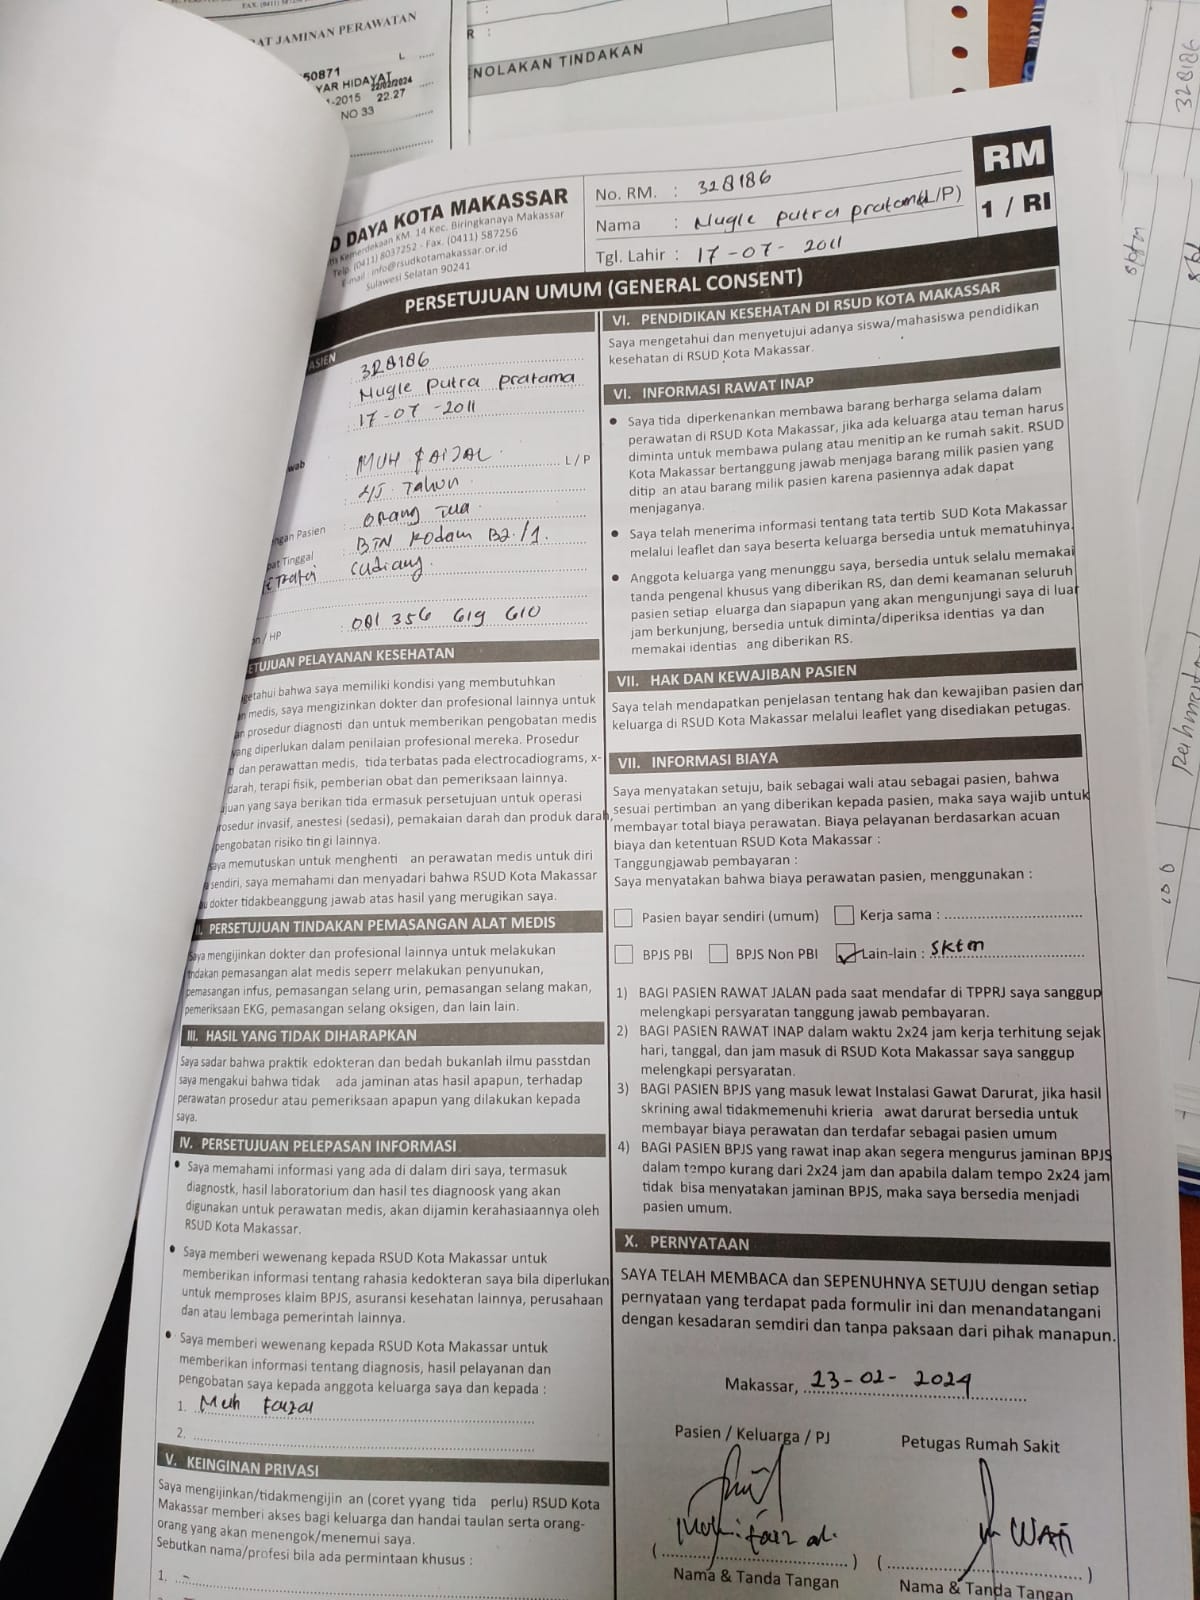 FAX. (0411)
AT JAMINAN PERAWATAN
L .....
50871
YAR HIDAYAT
22/02/2024
-2015 22.27
NO 33
R :
NOLAKAN TINDAKAN
328186
D DAYA KOTA MAKASSAR
Kemerdekaan KM. 14 Kec. Biringkanaya Makassar
Telp. (0411) 8037252 - Fax. (0411) 587256
E-mail : info@rsudkotamakassar.or.id
Sulawesi Selatan 90241
No. RM. : 328186
Nama : Nugie putra pratama (L/P)
Tgl. Lahir : 17-07-2011
RM
1 / RI
PERSETUJUAN UMUM (GENERAL CONSENT)
ASIEN
: 328186
: Nugie putra pratama
: 17-07-2011
wab : MUH FAIZAL L / P
: 45 Tahun
ngan Pasien : Orang Tua
pat Tinggal : BTN Kodam B2/1.
cudiang
on / HP : 081 356 619 610
ETUJUAN PELAYANAN KESEHATAN
getahui bahwa saya memiliki kondisi yang membutuhkan
n medis, saya mengizinkan dokter dan profesional lainnya untuk
an prosedur diagnosti dan untuk memberikan pengobatan medis
yang diperlukan dalam penilaian profesional mereka. Prosedur
i dan perawattan medis, tida terbatas pada electrocadiograms, x-
darah, terapi fisik, pemberian obat dan pemeriksaan lainnya.
ujuan yang saya berikan tida ermasuk persetujuan untuk operasi
rosedur invasif, anestesi (sedasi), pemakaian darah dan produk darah,
pengobatan risiko tin gi lainnya.
saya memutuskan untuk menghenti an perawatan medis untuk diri
sendiri, saya memahami dan menyadari bahwa RSUD Kota Makassar
u dokter tidakbeanggung jawab atas hasil yang merugikan saya.
I. PERSETUJUAN TINDAKAN PEMASANGAN ALAT MEDIS
Saya mengijinkan dokter dan profesional lainnya untuk melakukan
tindakan pemasangan alat medis seperr melakukan penyunukan,
pemasangan infus, pemasangan selang urin, pemasangan selang makan,
pemeriksaan EKG, pemasangan selang oksigen, dan lain lain.
III. HASIL YANG TIDAK DIHARAPKAN
Saya sadar bahwa praktik edokteran dan bedah bukanlah ilmu passtdan
saya mengakui bahwa tidak ada jaminan atas hasil apapun, terhadap
perawatan prosedur atau pemeriksaan apapun yang dilakukan kepada
saya.
IV. PERSETUJUAN PELEPASAN INFORMASI
• Saya memahami informasi yang ada di dalam diri saya, termasuk
diagnostk, hasil laboratorium dan hasil tes diagnoosk yang akan
digunakan untuk perawatan medis, akan dijamin kerahasiaannya oleh
RSUD Kota Makassar.
• Saya memberi wewenang kepada RSUD Kota Makassar untuk
memberikan informasi tentang rahasia kedokteran saya bila diperlukan
untuk memproses klaim BPJS, asuransi kesehatan lainnya, perusahaan
dan atau lembaga pemerintah lainnya.
• Saya memberi wewenang kepada RSUD Kota Makassar untuk
memberikan informasi tentang diagnosis, hasil pelayanan dan
pengobatan saya kepada anggota keluarga saya dan kepada :
1. Muh Faizal
2. ..........
V. KEINGINAN PRIVASI
Saya mengijinkan/tidakmengijin an (coret yyang tida perlu) RSUD Kota
Makassar memberi akses bagi keluarga dan handai taulan serta orang-
orang yang akan menengok/menemui saya.
Sebutkan nama/profesi bila ada permintaan khusus :
1. -
VI. PENDIDIKAN KESEHATAN DI RSUD KOTA MAKASSAR
Saya mengetahui dan menyetujui adanya siswa/mahasiswa pendidikan
kesehatan di RSUD Kota Makassar.
VI. INFORMASI RAWAT INAP
• Saya tida diperkenankan membawa barang berharga selama dalam
perawatan di RSUD Kota Makassar, jika ada keluarga atau teman harus
diminta untuk membawa pulang atau menitip an ke rumah sakit. RSUD
Kota Makassar bertanggung jawab menjaga barang milik pasien yang
ditip an atau barang milik pasien karena pasiennya adak dapat
menjaganya.
• Saya telah menerima informasi tentang tata tertib SUD Kota Makassar
melalui leaflet dan saya beserta keluarga bersedia untuk mematuhinya.
• Anggota keluarga yang menunggu saya, bersedia untuk selalu memakai
tanda pengenal khusus yang diberikan RS, dan demi keamanan seluruh
pasien setiap eluarga dan siapapun yang akan mengunjungi saya di luar
jam berkunjung, bersedia untuk diminta/diperiksa identias ya dan
memakai identias ang diberikan RS.
VII. HAK DAN KEWAJIBAN PASIEN
Saya telah mendapatkan penjelasan tentang hak dan kewajiban pasien dan
keluarga di RSUD Kota Makassar melalui leaflet yang disediakan petugas.
VII. INFORMASI BIAYA
Saya menyatakan setuju, baik sebagai wali atau sebagai pasien, bahwa
sesuai pertimban an yang diberikan kepada pasien, maka saya wajib untuk
membayar total biaya perawatan. Biaya pelayanan berdasarkan acuan
biaya dan ketentuan RSUD Kota Makassar :
Tanggungjawab pembayaran :
Saya menyatakan bahwa biaya perawatan pasien, menggunakan :
Pasien bayar sendiri (umum) Kerja sama : ..........
BPJS PBI BPJS Non PBI ✓ Lain-lain : Sktm
1) BAGI PASIEN RAWAT JALAN pada saat mendafar di TPPRJ saya sanggup
melengkapi persyaratan tanggung jawab pembayaran.
2) BAGI PASIEN RAWAT INAP dalam waktu 2x24 jam kerja terhitung sejak
hari, tanggal, dan jam masuk di RSUD Kota Makassar saya sanggup
melengkapi persyaratan.
3) BAGI PASIEN BPJS yang masuk lewat Instalasi Gawat Darurat, jika hasil
skrining awal tidakmemenuhi krieria awat darurat bersedia untuk
membayar biaya perawatan dan terdafar sebagai pasien umum
4) BAGI PASIEN BPJS yang rawat inap akan segera mengurus jaminan BPJS
dalam tempo kurang dari 2x24 jam dan apabila dalam tempo 2x24 jam
tidak bisa menyatakan jaminan BPJS, maka saya bersedia menjadi
pasien umum.
X. PERNYATAAN
SAYA TELAH MEMBACA dan SEPENUHNYA SETUJU dengan setiap
pernyataan yang terdapat pada formulir ini dan menandatangani
dengan kesadaran semdiri dan tanpa paksaan dari pihak manapun.
Makassar, 23-02-2024
Pasien / Keluarga / PJ
Petugas Rumah Sakit
Muh. Faizal
WATI
Nama & Tanda Tangan
Nama & Tanda Tangan